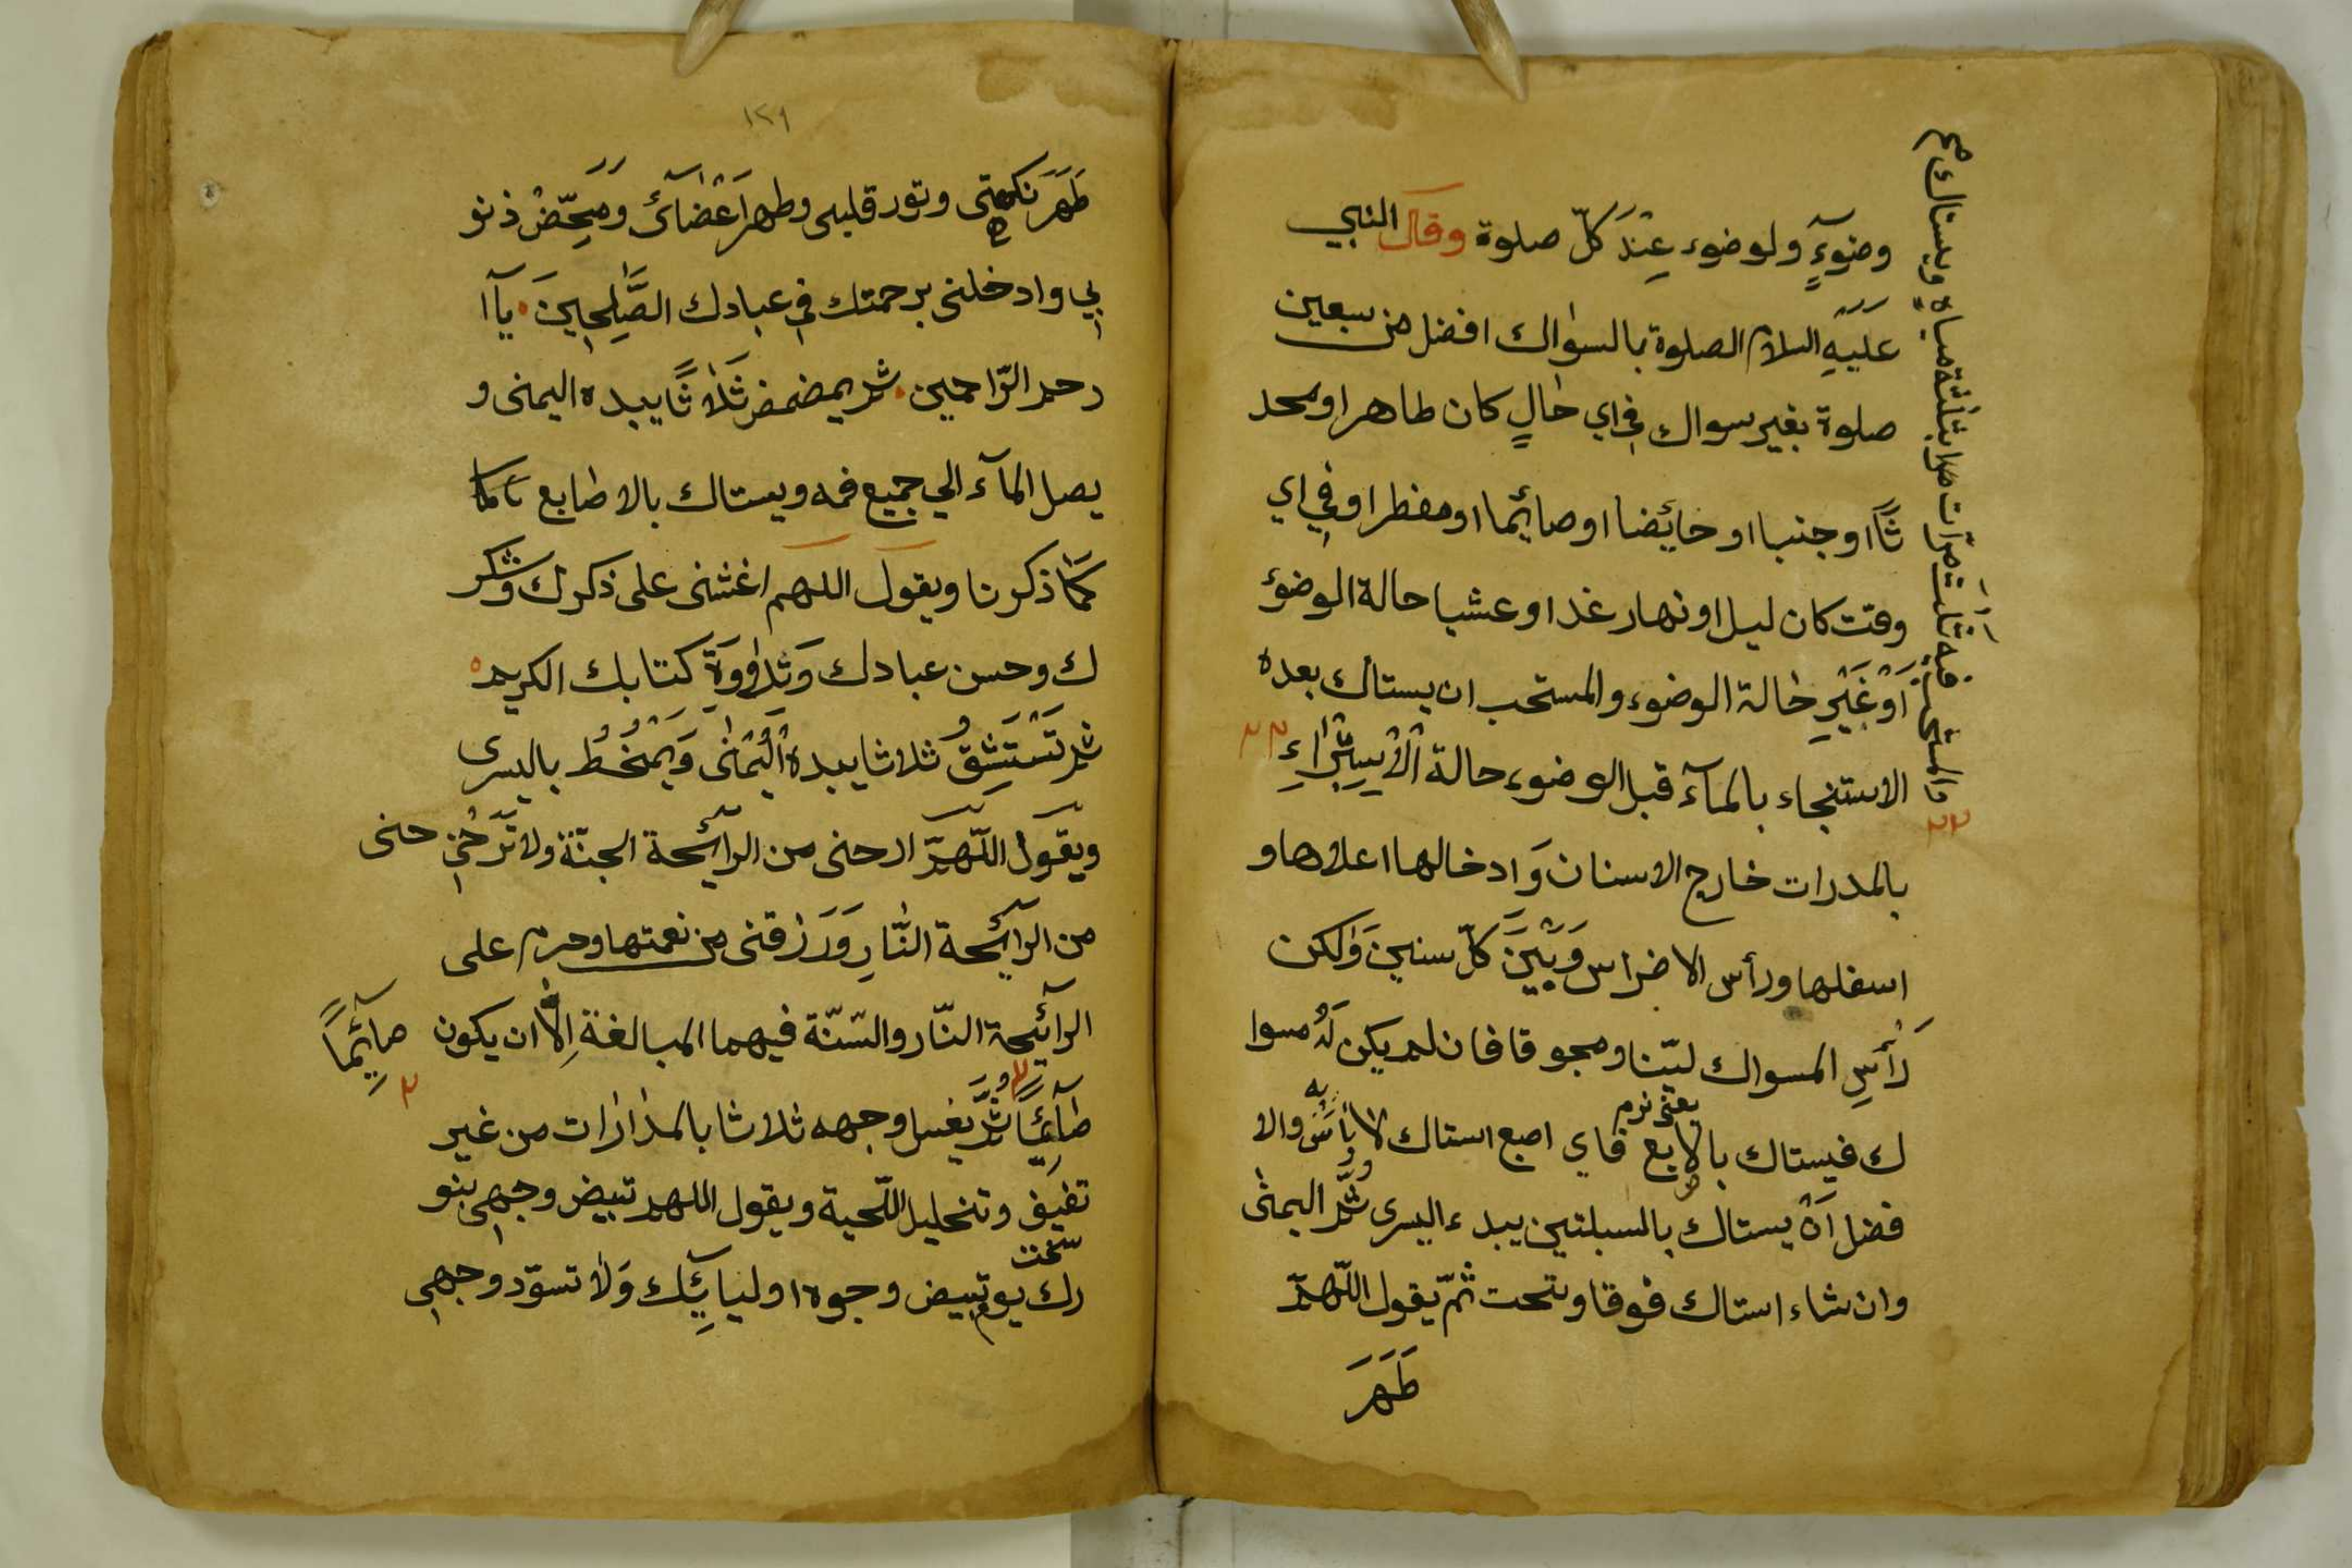 وضوءٍ ولوضوء عِنْدَ كلّ صلوة وقال النبي
عليَهِ السلام الصلوة بالسواك افضل من سبعين
صلوة بغير سواك في اي حٰالٍ كان طاهرا ومحد
ثاً او جنبا او حائضا او صائما او مفطرا وفي اي
وقت كان ليل او نهار غدا وعشيا حالة الوضوء
اَوْ غَيْرِ حٰالة الوضوء والمستحب ان يستاك بعده
الاستنجاء بالمآء قبل الوضوء حالة
بالمدرات خارج الاسنان وَادخالها اعلاها و
اسفلها ورأس الاضراس وَبَيْنَ كلّ سنين وَلكن
رَأسِ المسواك ليّنا ومجوقا فان لم يكن لَهُ مسوا
ك فيستاك بالاصبع فاي اصبع استاك لا بأسَ به والا
يعنى نرم
فضل اَنْ يستاك بالسبلتين يبدء اليسرى ثُمَّ اليمنٰى
وان شاء استاك فوقا وتحت ثمّ يقول اللّهمّ
طَهَرَ
والمستحب فيه ثلث مرّات بثلثة مياه ويستاك
١٢٩
طَهَرَ نكهتى ونور قلبى وطهر اَعْضٰآئ وَمَحِّصْ ذنو
بي وادخلنى برحمتك في عبادك الصّٰلِحِينَ يآا
رحم الرّاحمين ثم يمضمض ثَلٰاثًا بيده اليمنى و
يصل المآء الي جميع فمه ويستاك بالاصابع
كمٰا ذكرنا ويقول اللهم اغشنى على ذكرك وشكر
ك وحسن عبادك وَتِلٰاوَةِ كتابك الكريم
ثم تَسْتَنْشِقُ ثلاثا بيده اليُمْنٰى وَيَمْخُطُ باليسرى
ويقول اللّهمّ ارحنى من الرآئحة الجنّة ولا تَرِحْني حنى
من الرآئحة النّارِ وَرَزقنى من نعمتها وحرم على
الرآئحة النّار والسّنّة فيهما المبالغة اِلّا ان يكون صآئِماً
صٰآئِماً ثُمَّ يغسل وجهه ثلاثا بالمدارات من غير
تفنيف وتخليل اللّحية ويقول اللهم تبيض وجهي بنو
سخت
رك يوم تبيض وجوه اوليآئِك وَلٰا تسوّد وجهي